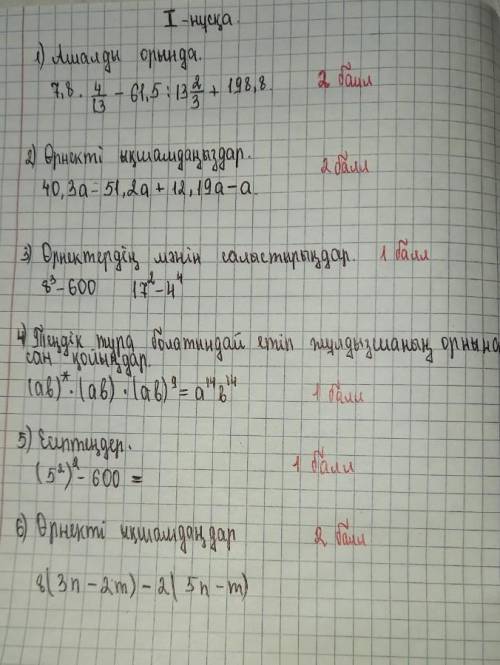 I-нұсқа.
1) Амалды орында.
7,8 · 4/13 - 61,5 : 13 2/3 + 198,8. 2 балл
2) Өрнекті ықшамдаңыздар. 2 балл
40,3a = 51,2a + 12,19a - a
3) Өрнектердің мәнін салыстырыңдар. 1 балл
8³ - 600 17² - 4⁴
4) Теңдік тура болатындай етіп жұлдызшаның орнына
сан қойыңдар.
(ab)* · (ab) · (ab)⁹ = a¹⁴b¹⁴ 1 балл
5) Есептеңдер.
(5²)² - 600 = 1 балл
6) Өрнекті ықшамдаңдар 2 балл
8(3n - 2m) - 2(5n - m)